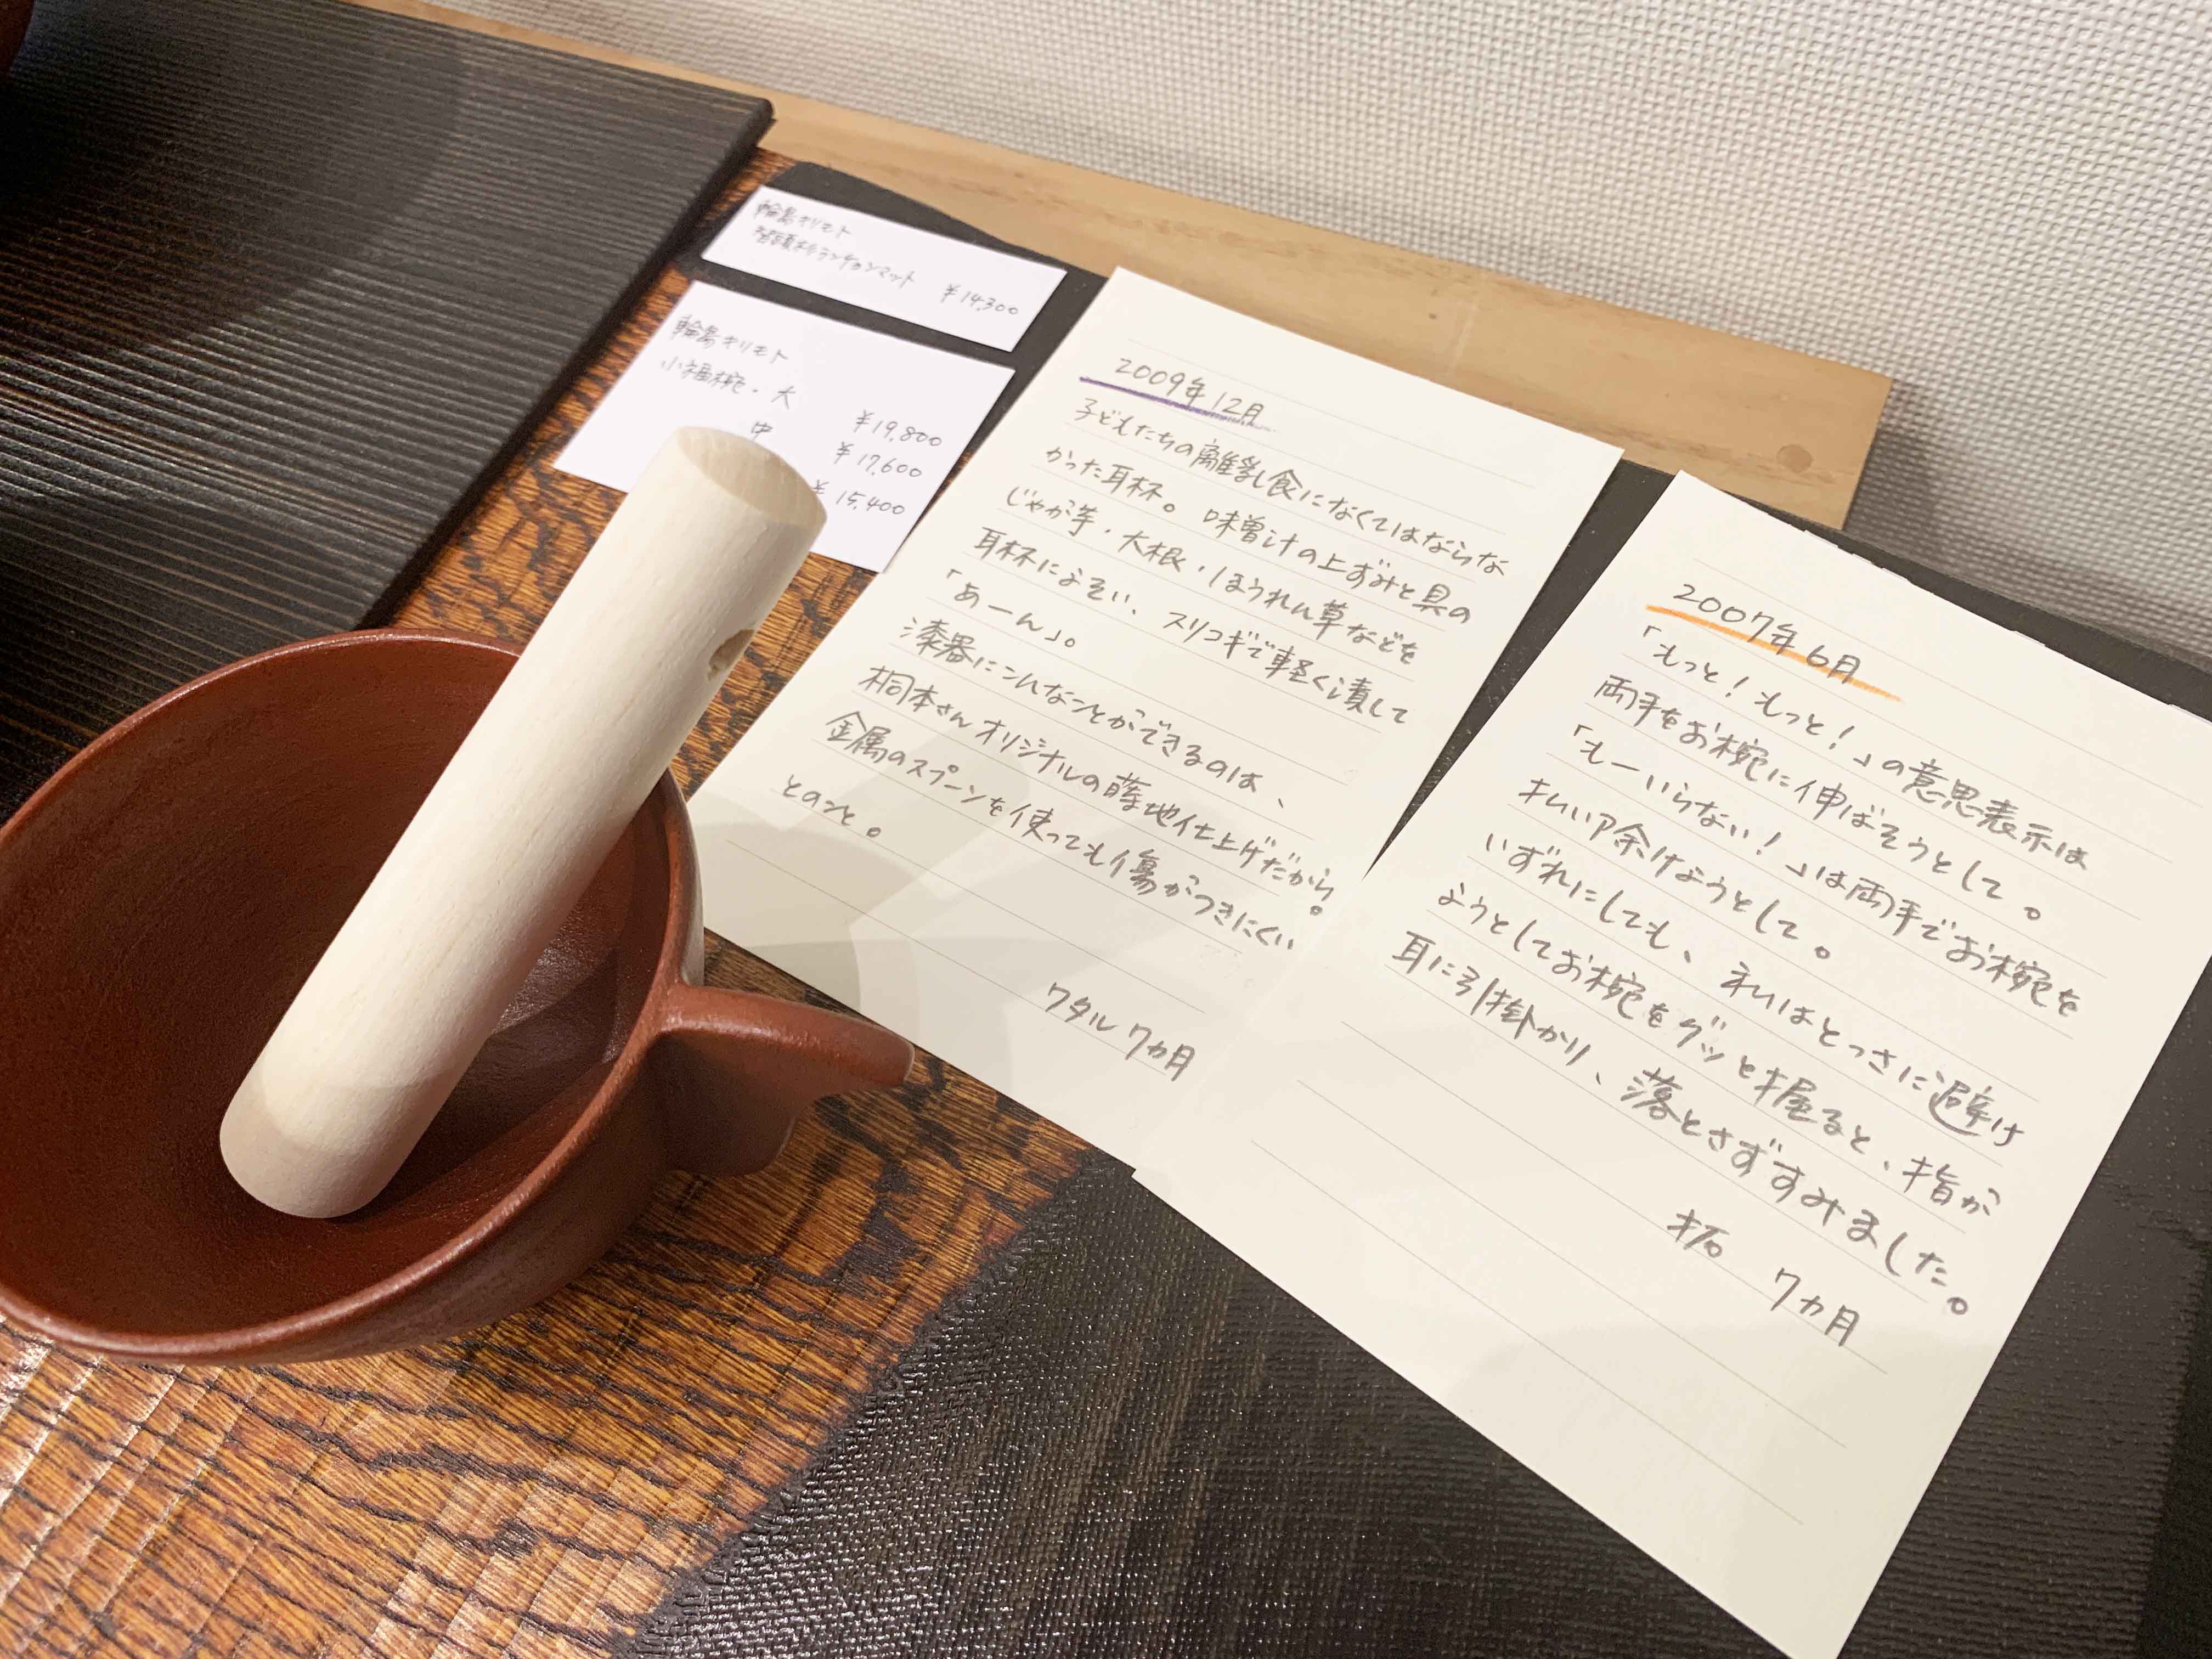 輪島キリモト
杉ランチョンマット ¥14,300
輪島キリモト
小福椀・大 ¥19,800
中 ¥17,600
¥15,400
2009年12月
子どもたちの離乳食になくてはならな
かった耳杯。味噌汁の上ずみと具の
じゃが芋・大根・ほうれん草などを
耳杯によそい、スリコギで軽く潰して
「あーん」。
漆器にこんなことができるのは、
桐本さんオリジナルの蒔地仕上げだから。
金属のスプーンを使っても傷がつきにくい
とのこと。
ワタル 7ヵ月
2007年6月
「もっと!もっと!」の意思表示は
両手をお椀に伸ばそうとして。
「もーいらない!」は両手でお椀を
払い除けようとして。
いずれにしても、私はとっさに避け
ようとしてお椀をグッと握ると、指が
耳に引掛かり、落とさずすみました。
拓 7ヵ月